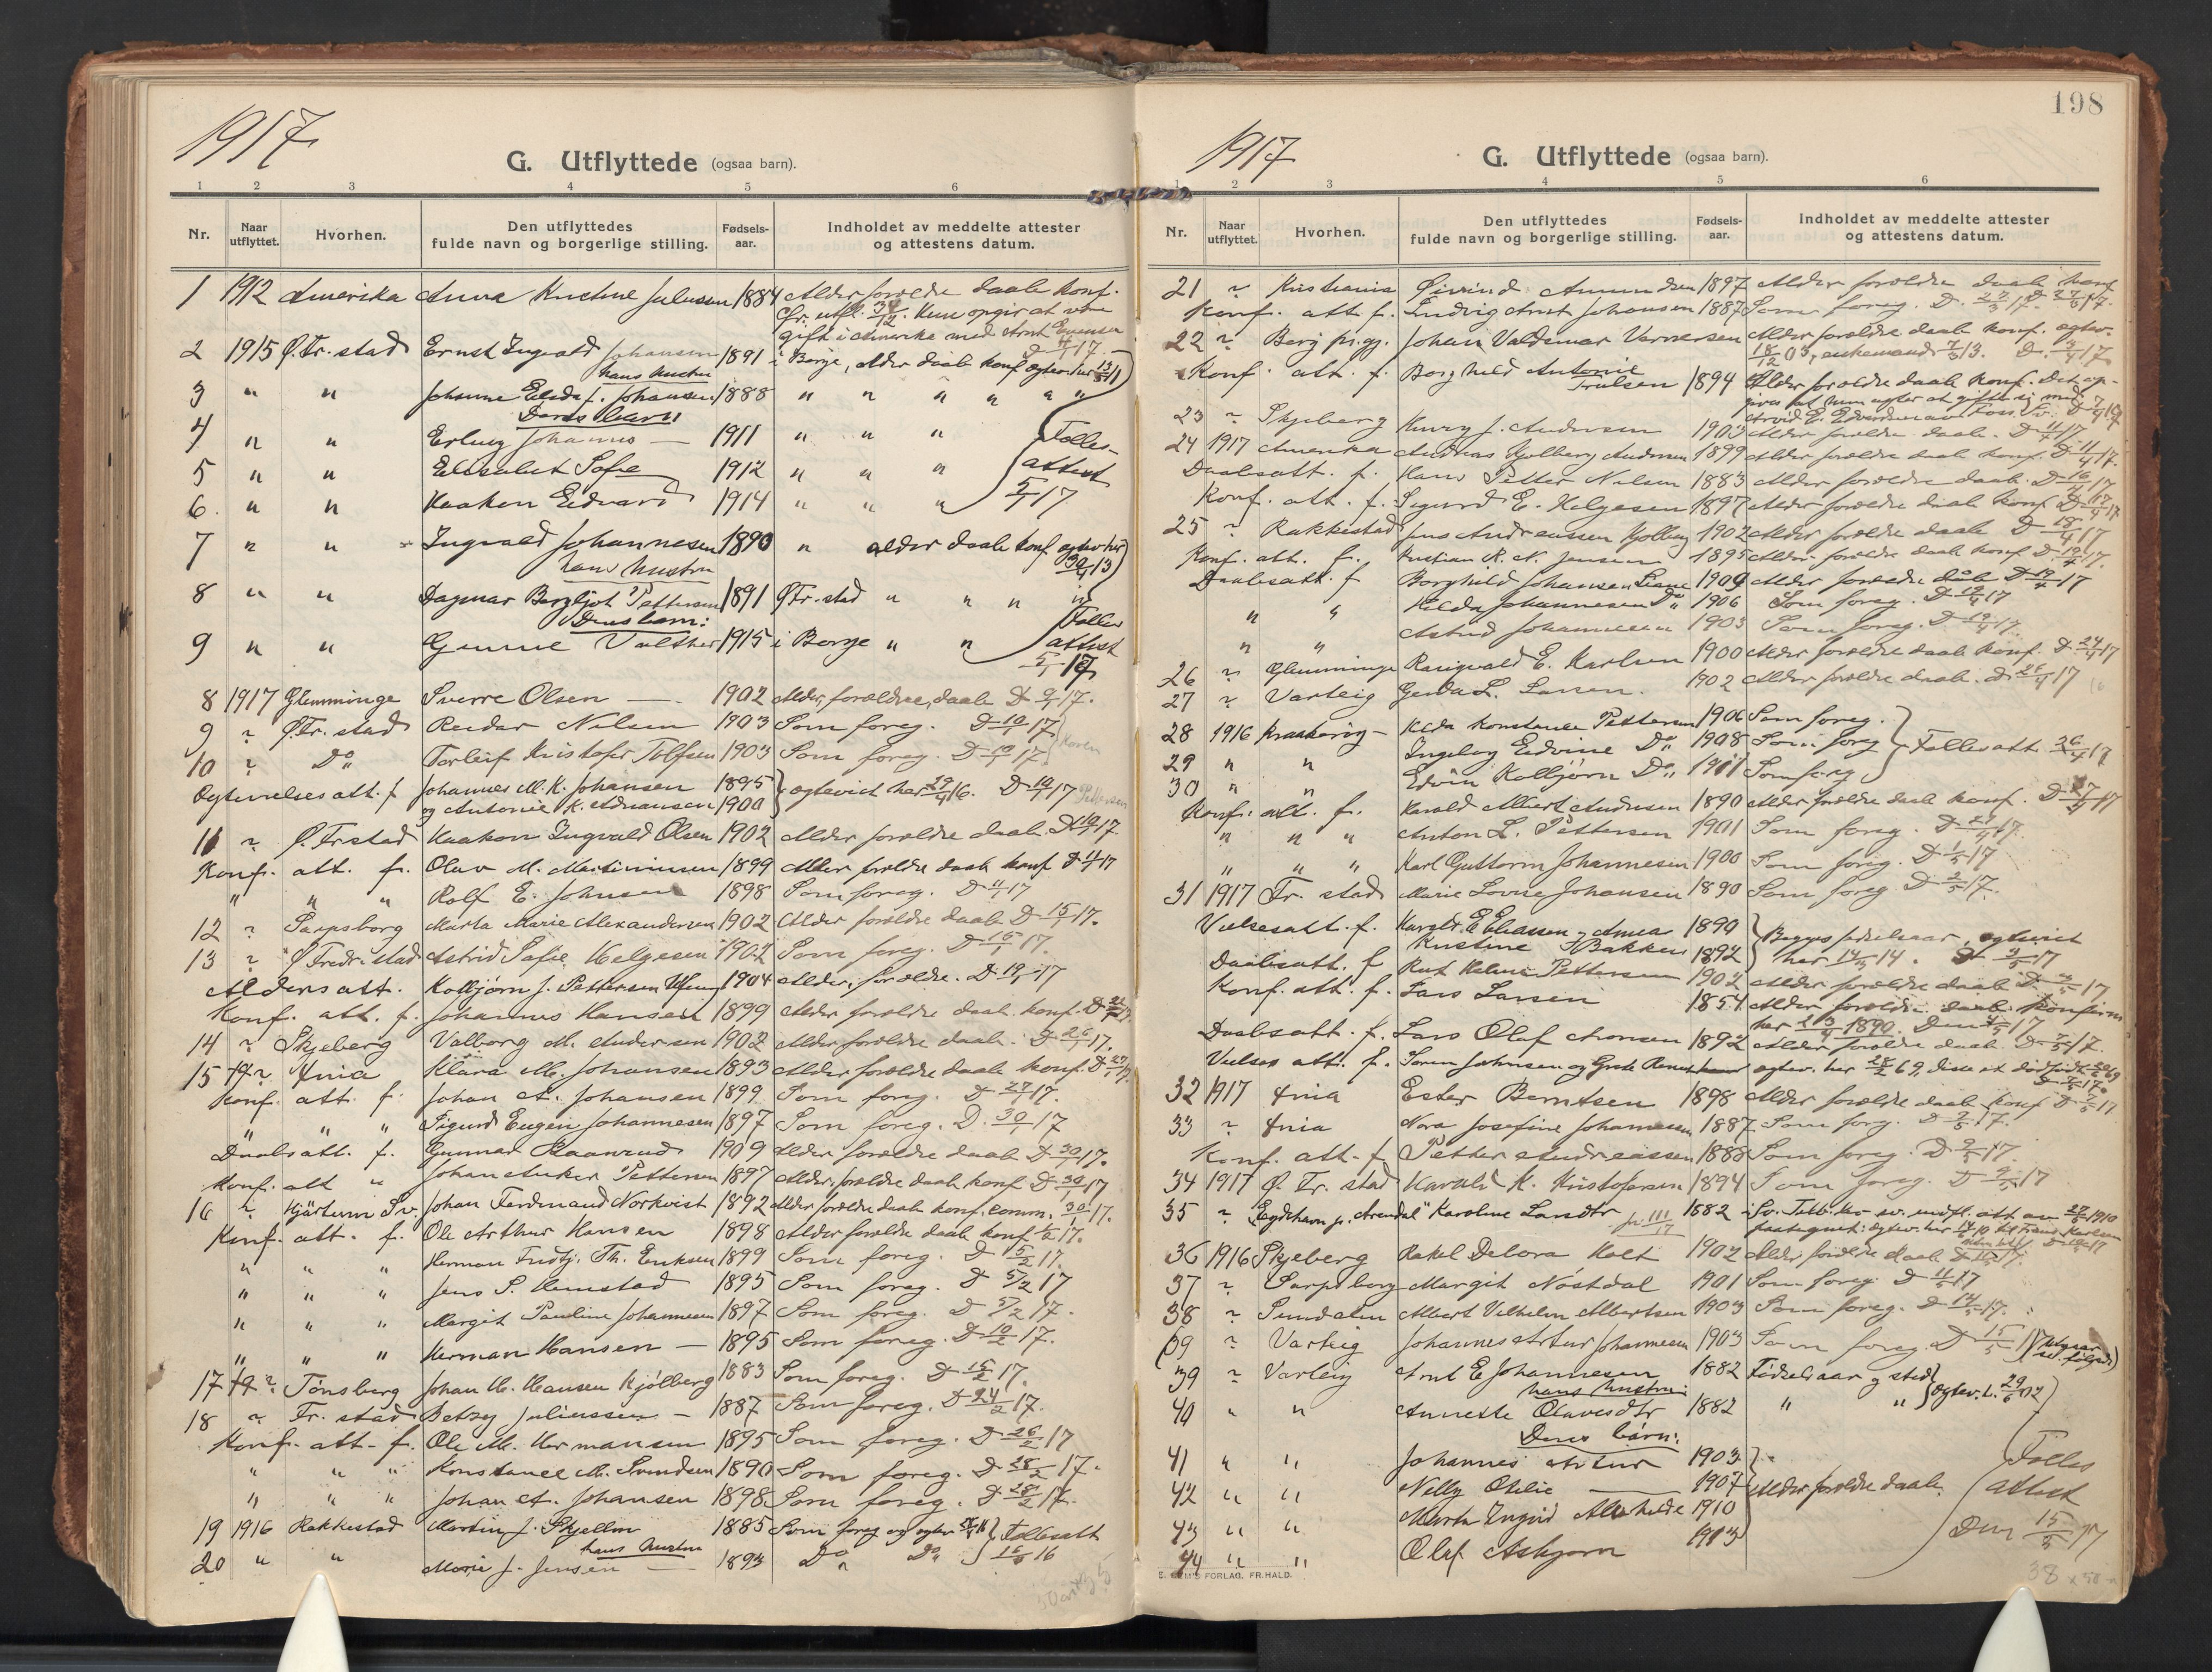 1917
G. Utflyttede (ogsaa barn).
1 2 3 4 5 6
Nr. Naar utflyttet. Hvorhen. Den utflyttedes fulde navn og borgerlige stilling. Fødsels-aar. Indholdet av meddelte attester og attestens datum.
1 1912 Amerika Anna Kristine Juliussen 1884 Alder forældre daab konf.
Hun opgir at være
gift i Amerika med Arnt Evensen
2 1915 Ø. Fr. stad Ernst Ingvald Johansen 1891 i Borge, alder daab konf
hans hustru
3 " " Johanne Elida f. Johansen 1888 " " " " "
Deres barn:
4 " " Erling Johannes — 1911 " " " Fælles-
5 " " Elisabet Sofie 1912 " " " attest
6 " " Haakon Edvard 1914 " " " 5/1 17
7 " " Ingvald Johannesen 1890 " alder daab konf
hans hustru
8 " " Dagmar Bergljot Pettersen 1891 Ø Fr. stad " " " "
Deres barn: Fælles
9 " " Gunnel Valther 1915 i Borge " " attest
5/1 17
8 1917 Glemminge Sverre Olsen — 1902 Alder, forældre, daab D 9/1 17.
9 " Ø. Fr. stad Reidar Nilsen 1903 Som foreg. D 10/1 17
10 " Do Torleif Kristofer Tolfsen 1903 Som foreg. D 10/1 17
Ogtevielsesatt. f. Johannes M. K. Johansen 1895
og Antonie K. Adriansen 1900 ogtevict her 29/4 16. D 10/1 17
11 " Ø. Fr stad Haakon Ingvald Olsen 1902 Alder forældre daab. D 10/1 17
Konf. att. f. Olav M. Martiniussen 1899 Alder forældre daab konf
" " " Rolf E. Johnsen 1898 Som foreg.
12 " Sarpsborg Marta Marie Alexandersen 1902 Alder forældre daab D 15/1 17.
13 " Ø Fredr. stad Astrid Sofie Helgesen 1902 Som foreg. D 15/1 17.
Aldersatt. Kolbjørn J. Pettersen 1904 Alder, forældre. D 19/1 17
Konf. att. f. Johannes Hansen 1899 Alder forældre daab konf.
14 " Skjeberg Valborg M. Andersen 1902 Alder forældre daab. D 26/1 17.
15 " Kria Klara M. Johansen 1893 Alder forældre daab konf.
Konf. att. f. Johan A. Johansen 1899 Som foreg. D 27/1 17.
" " " Sigurd Eugen Johannesen 1897 Som foreg. D. 30/1 17
Daabsatt. f. Gunnar Raanrud 1909 Alder forældre daab D 30/1 17.
Konf. att " Johan Anker Pettersen 1897 Alder, forældre daab konf D 30/1 17
16 " Hjärtum Sv. Johan Ferdinand Norkvist 1892 Alder forældre daab konf. comm. 30/1 17.
Konf. att. f. Ole Arthur Hansen 1898 Alder forældre daab konf.
" " " Herman Fridtj. Th. Eriksen 1899 Som foreg. D 5/2 17.
" " " Jens S. Hemstad 1895 Som foreg. D 5/2 17
" " " Margit Pauline Johannesen 1897 Som foreg. D 5/2 17.
" " " Herman Hansen — 1895 Som foreg. D 10/2 17.
17 " Tønsberg Johan M. Hansen Kjølberg 1883 Som foreg. D 15/2 17.
18 " Fr. stad Betzy Juliussen — 1887 Som foreg. D 24/2 17.
Konf. att. f. Ole M. Hermansen 1895 Som foreg. D 26/2 17
" " " Konstance M. Svendsen 1890 Som foreg. D 28/2 17.
" " " Johan A. Johansen 1898 Som foreg. D 28/2 17.
19 1916 Rakkestad Martin J. Skjellin 1885 Som foreg og ogtev. Fællesatt
hans hustru
20 " " Marie J. Jensen — 1893 Do Do
198
1917
G. Utflyttede (ogsaa barn).
1 2 3 4 5 6
Nr. Naar utflyttet. Hvorhen. Den utflyttedes fulde navn og borgerlige stilling. Fødsels-aar. Indholdet av meddelte attester og attestens datum.
21 " Kristiania Øivind Amundsen 1897 Alder forældre daab konf
Konf. att. f. Ludvig Arnt Johansen 1887 Som foreg.
22 " Berg pr.gj. Johan Valdemar Vernersen Alder forældre daab konf. ogtev.
18/12 03, enkemand 7/3 13.
Konf. att. f. Borghild Antonie
Trulsen 1894 Alder forældre daab konf. Det op-
gives at hun agter at gifte sig med
23 " Skjeberg Henry J. Andersen 1903 Alder forældre daab. D 11/4 17
24 1917 Amerika Andreas Kjølberg Andersen 1899 Alder forældre daab konf. D 11/4 17.
Daabsatt. f. Hans Petter Nilsen 1883 Alder forældre daab. D 16/4 17
Konf. att. f. Sigurd E. Helgesen 1897 Alder forældre daab konf D 17/4 17
25 " Rakkestad Jens Andreassen Kjølberg 1902 Alder forældre daab D 18/4 17
Konf. att. f. Kristian K. N. Jensen 1895 Alder forældre daab konf D 19/4 17.
Daabsatt. f Borghild Johansen Liane 1909 Alder forældre daab D 19/4 17
" " Hilda Johannesen Do 1906 Som foreg. D 19/4 17
" " Astrid Johannesen 1903 Som foreg. D 19/4 17.
26 " Glemminge Ragnvald E. Karlsen 1900 Alder forældre daab konf. D 24/4 17
27 " Varteig Gerda L. Larsen. 1902 Alder forældre daab.
28 1916 Kraakerøy — Hilda Konstanse Pettersen 1906 Som foreg.
29 " " Ingeborg Edvine Do 1908 Som foreg Fællesatt. 26/4 17
30 " " Edvin Kolbjørn Do 1911 Som foreg
Konf. att. f. Harald Albert Andersen 1890 Alder forældre daab konf. D 27/4 17
" " " Anton L. Pettersen 1901 Som foreg. D 27/4 17.
" " " Karl Guttorm Johannesen 1900 Som foreg. D 1/5 17
31 1917 Fr. stad Marie Lovise Johansen 1890 Som foreg D 2/5 17.
Vielsesatt. f. Harald E. Eliassen og Anna 1890 Begges fødselsaar, ogtevict
Kristine Bakken 1892 her 14/3 14. D 2/5 17
Daabsatt. f Rut Helene Pettersen 1902 Alder forældre daab
Konf. att. f. Lars Larsen 1854 Alder forældre daab konfirm
her 1890.
Daabsatt. f. Lars Olaf Aronsen 1892 Alder forældre daab. D 5/5 17.
Vielses att. f. Søren Johnsen og Grete ogtev. her 28/2 69,
32 1917 Kria Ester Berntsen 1898 Alder forældre daab konf D 7/5 17
33 " Kria Nora Josefine Johannesen 1887 Som foreg. D 7/5 17.
Konf. att. f Petter Andreassen 1888 Som foreg. D 9/5 17.
34 1917 Ø. Fr. stad Harald K. Kristofersen 1894 Som foreg. D 9/5 17
35 " "Egdehavn p. Arendal" Karoline Larsdtr 1882
36 1916 Skjeberg Rakel Debora Holt 1902 Alder forældre daab
37 " Sarpsborg Margit Nøstdal 1901 Som foreg D 11/5 17
38 " Sundalen Albert Vilhelm Albertsen 1903 Som foreg. D 14/5 17.
39 " Varteig Johannes Artur Johannesen 1903 Som foreg. D 15/5 17
39 " Varteig Arnt E Johannesen 1882 Fødselsaar og sted
hans hustru:
40 " " Annette Olavesdtr 1882 " " ogtev. h. 29/6 02
Deres børn:
41 " " Johannes Artur 1903 Fælles
42 " " Nelly Otelie — 1907 Alder forældre daab. attest
43 " " Marta Ingrid 1910 Den 15/5 17
44 " " Olaf Asbjørn 1913
E. SEM'S FORLAG. FR.HALD.
38